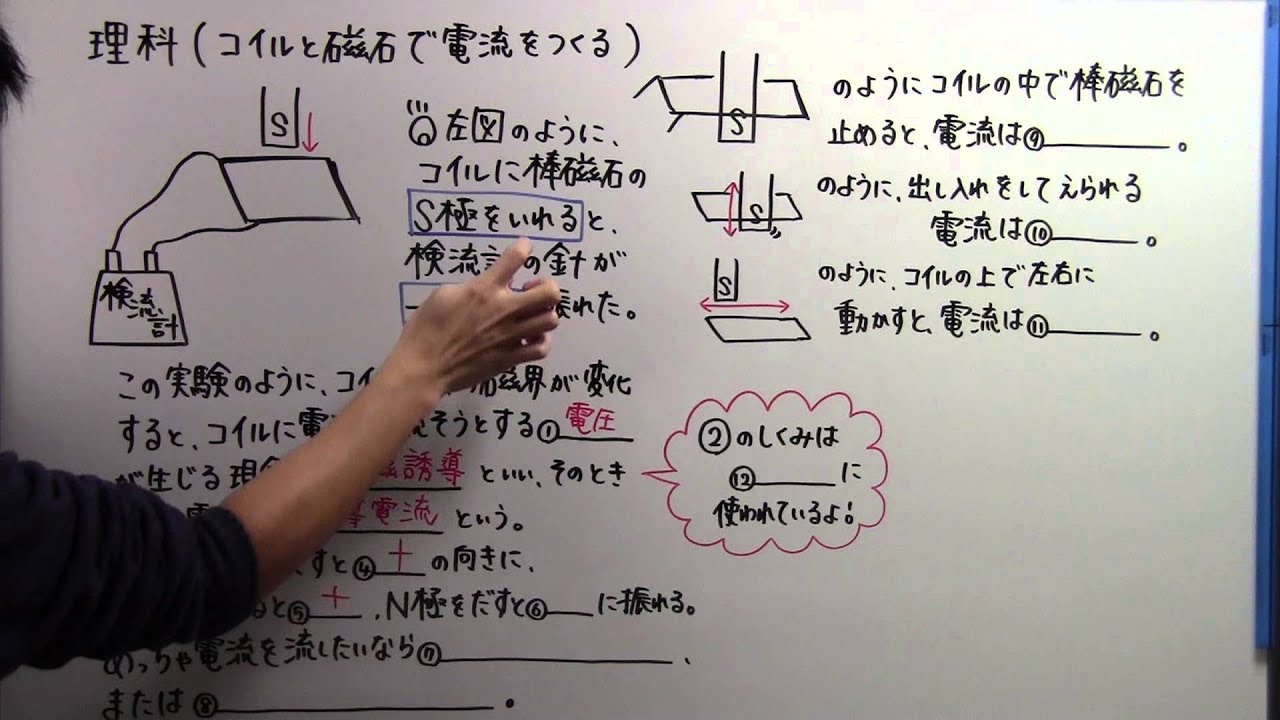 理科(コイルと磁石で電流をつくる)
S
検流計
左図のように、
コイルに棒磁石の
S極をいれると、
検流 の針が
れた。
この実験のように、コイ 磁界が変化
すると、コイルに電 そうとする①電圧
が生じる現 誘導といい、そのとき
電流という。
すと④+の向きに、
ると⑤+、N極をだすと⑥ に振れる。
めっちゃ電流を流したいなら⑦ 、
または⑧ 。
S
のようにコイルの中で棒磁石を
止めると、電流は⑨ 。
S
のように、出し入れをしてえられる
電流は⑩ 。
S
のように、コイルの上で左右に
動かすと、電流は⑪ 。
②のしくみは
⑫ に
使われているよ!